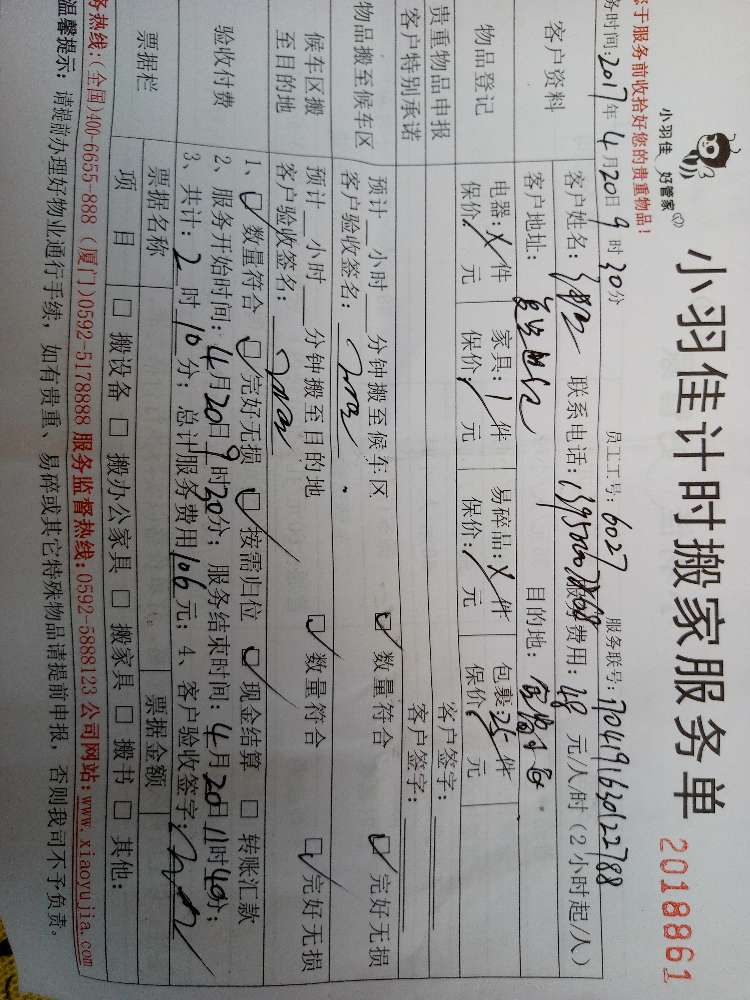 小羽佳 好管家
小羽佳计时搬家服务单
2018861
您于服务前收拾好您的贵重物品！
员工工号：6027 服务联号：
务时间：2017年4月20日9时30分
客户资料
客户姓名： 联系电话： 服务费用：48元/人/时（2小时起/人）
客户地址： 目的地：
物品登记
电器：X件 家具：1件 易碎品：X件 包裹25件
保价：/元 保价：/元 保价：/元 保价/元
贵重物品申报 客户签字：
客户特别承诺 客户签字：
物品搬至候车区
预计__小时__分钟搬至候车区 ☑数量符合 ☑完好无损
客户验收签名：
候车区搬至目的地
预计__小时__分钟搬至目的地 ☑数量符合 ☑完好无损
客户验收签名：
验收付费
1、☑数量符合 ☑完好无损 ☑按需归位 ☑现金结算 □转账汇款
2、服务开始时间：4月20日9时30分；服务结束时间：4月20日11时40分；
3、共计：2时10分；总计服务费用106元；4、客户验收签字：
票据栏
票据名称 票据金额
项目 □搬设备 □搬办公家具 □搬家具 □搬书 □其他：
务热线：(全国)400-6655-888（厦门)0592-5178888 服务监督热线:0592-5888123 公司网站:www.xiaoyujia.com
温馨提示：请提前办理好物业通行手续，如有贵重、易碎或其它特殊物品请提前申报，否则我司不予负责。